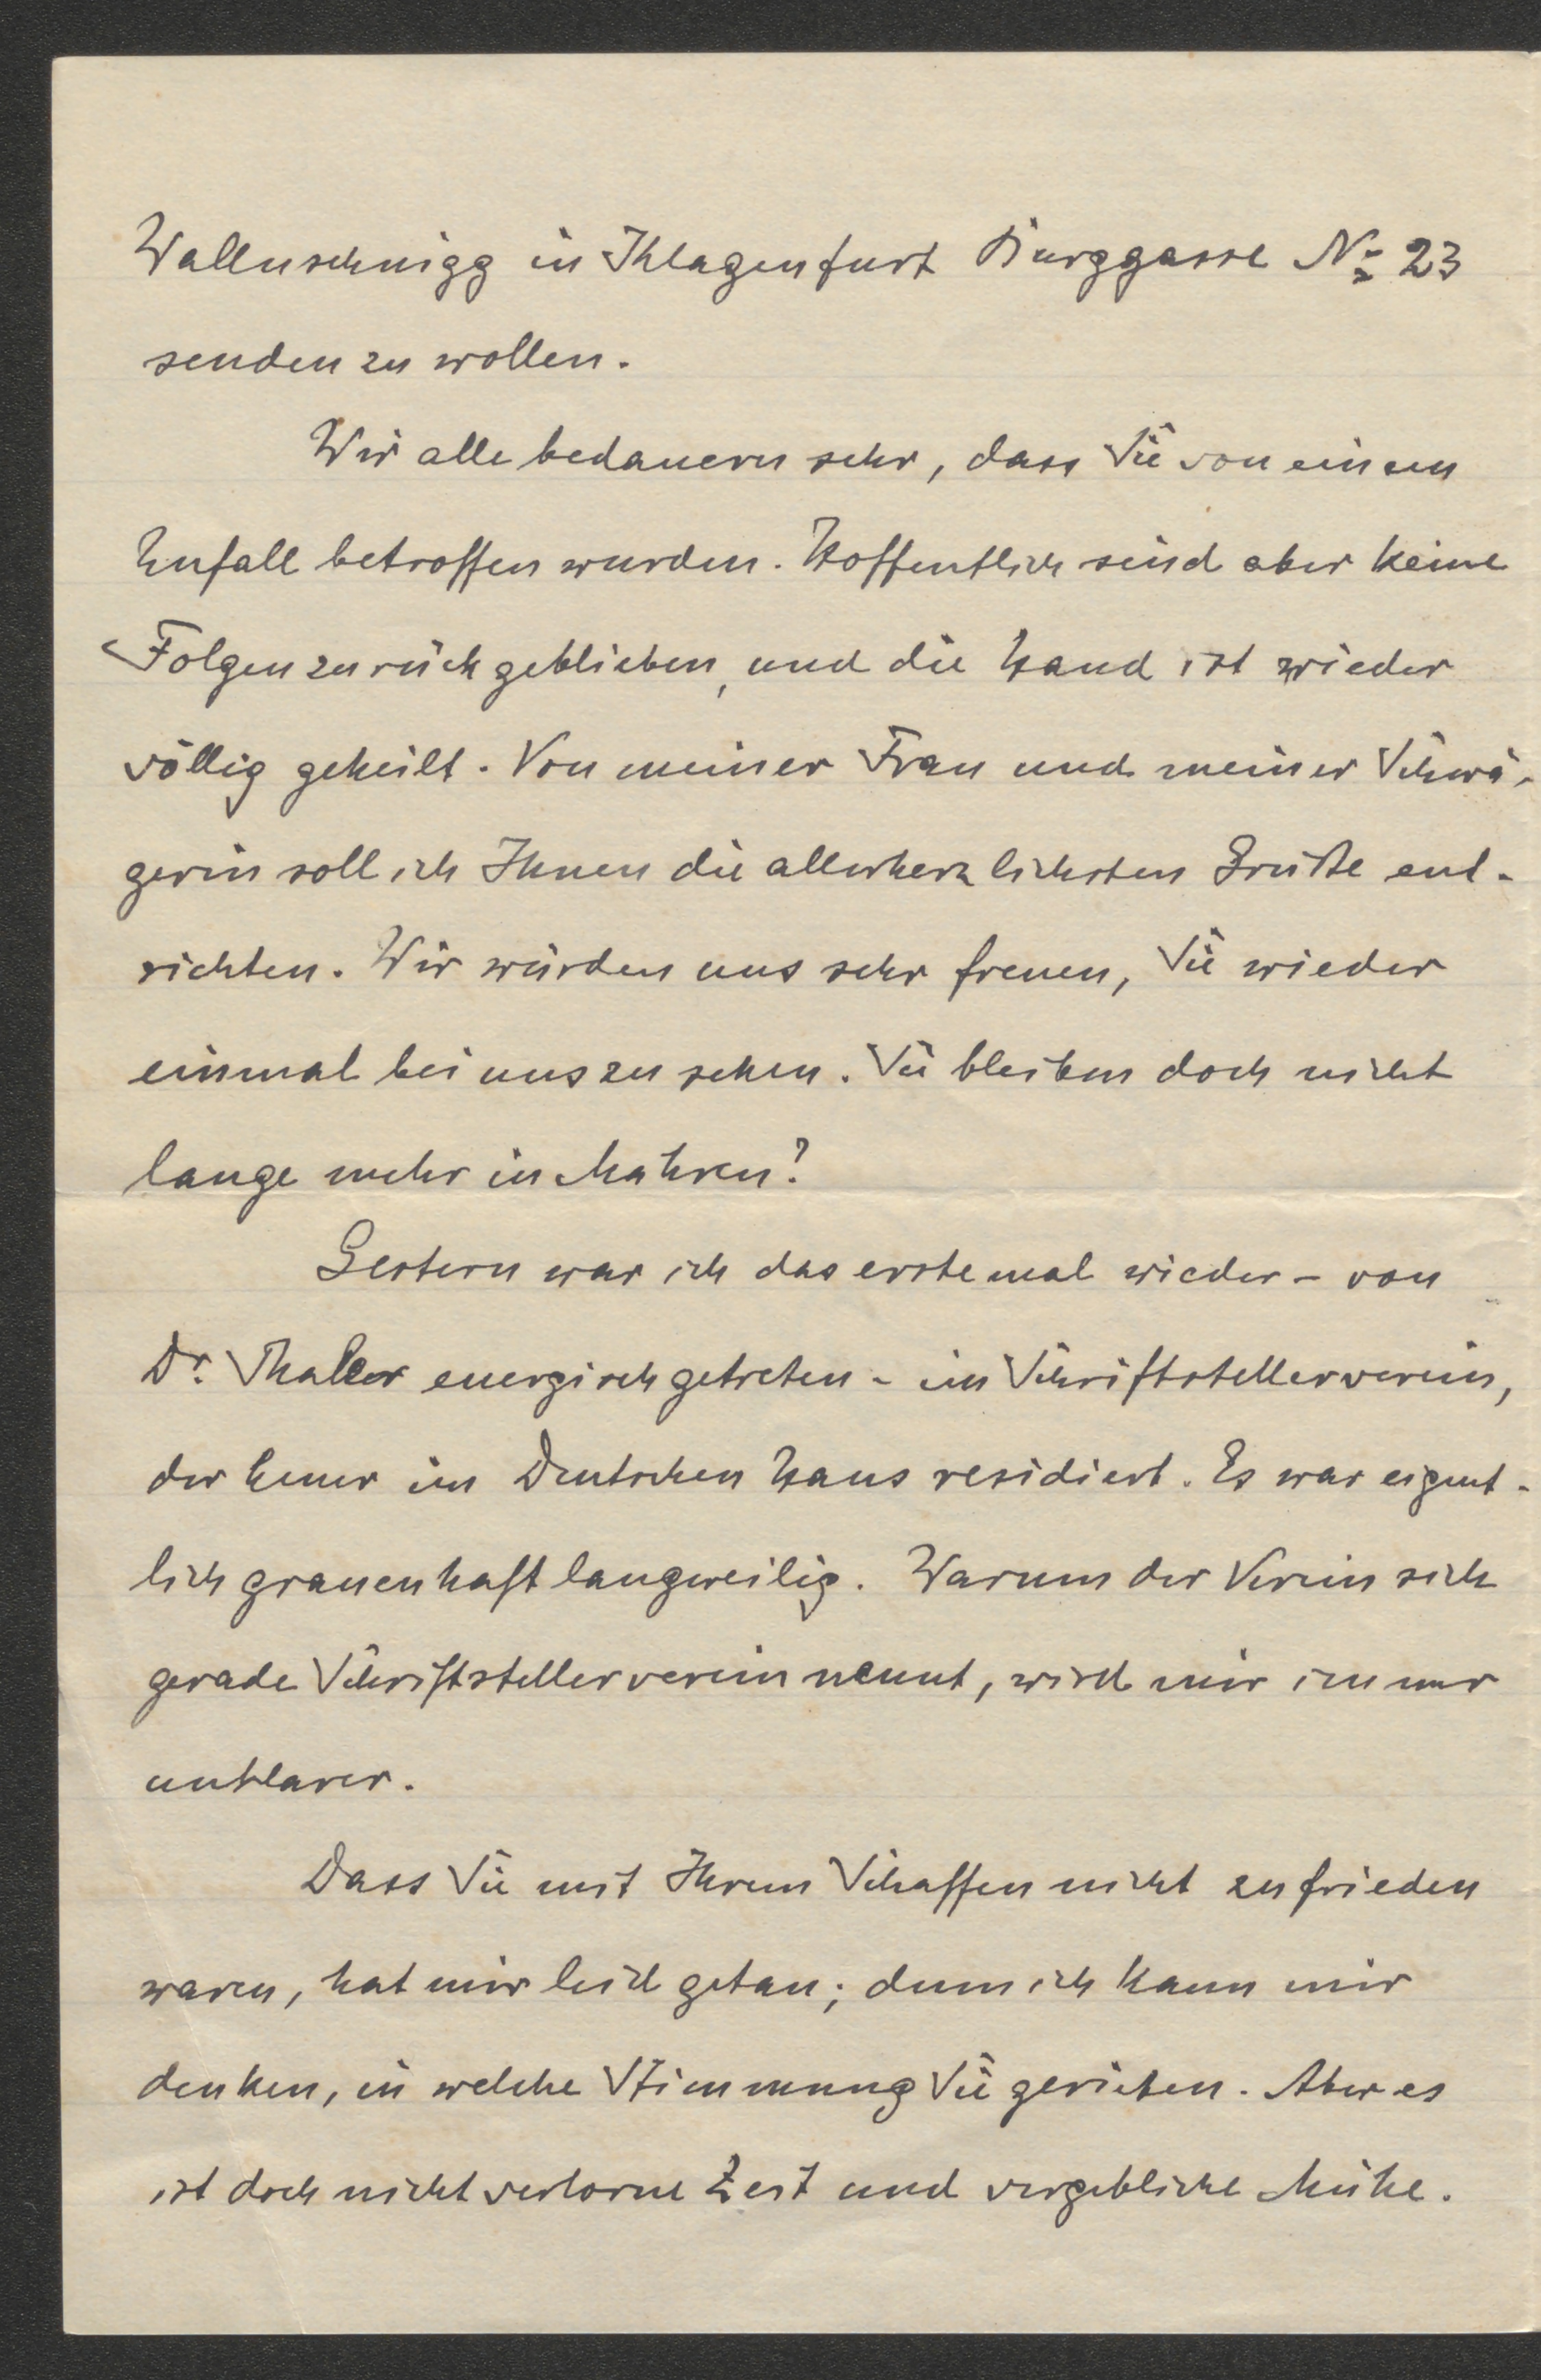 Wallnschnigg in Klagenfurt Burggasse No 23
senden zu wollen.
Wir alle bedauern sehr, dass Sie von einem
Unfall betroffen wurden. Hoffentlich sind aber keine
Folgen zurückgeblieben, und die Hand ist wieder
völlig geheilt. Von meiner Frau und meiner Schwä-
gerin soll ich Ihnen die allerherzlichsten Grüße ent-
richten. Wir würden uns sehr freuen, Sie wieder
einmal bei uns zu sehen. Sie bleiben doch nicht
lange mehr in Mähren?
Gestern war ich das erstemal wieder - von
Dr. Thaler energisch getreten - im Schriftstellerverein,
der heuer im Deutschen Haus residiert. Es war eigent-
lich grauenhaft langweilig. Warum der Verein sich
gerade Schriftstellerverein nennt, wird mir immer
unklarer.
Dass Sie mit Ihrem Schaffen nicht zufrieden
waren, hat mir leid getan; denn ich kann mir
denken, in welche Stimmung Sie gerieten. Aber es
ist doch nicht verlorne Zeit und vergebliche Mühe.